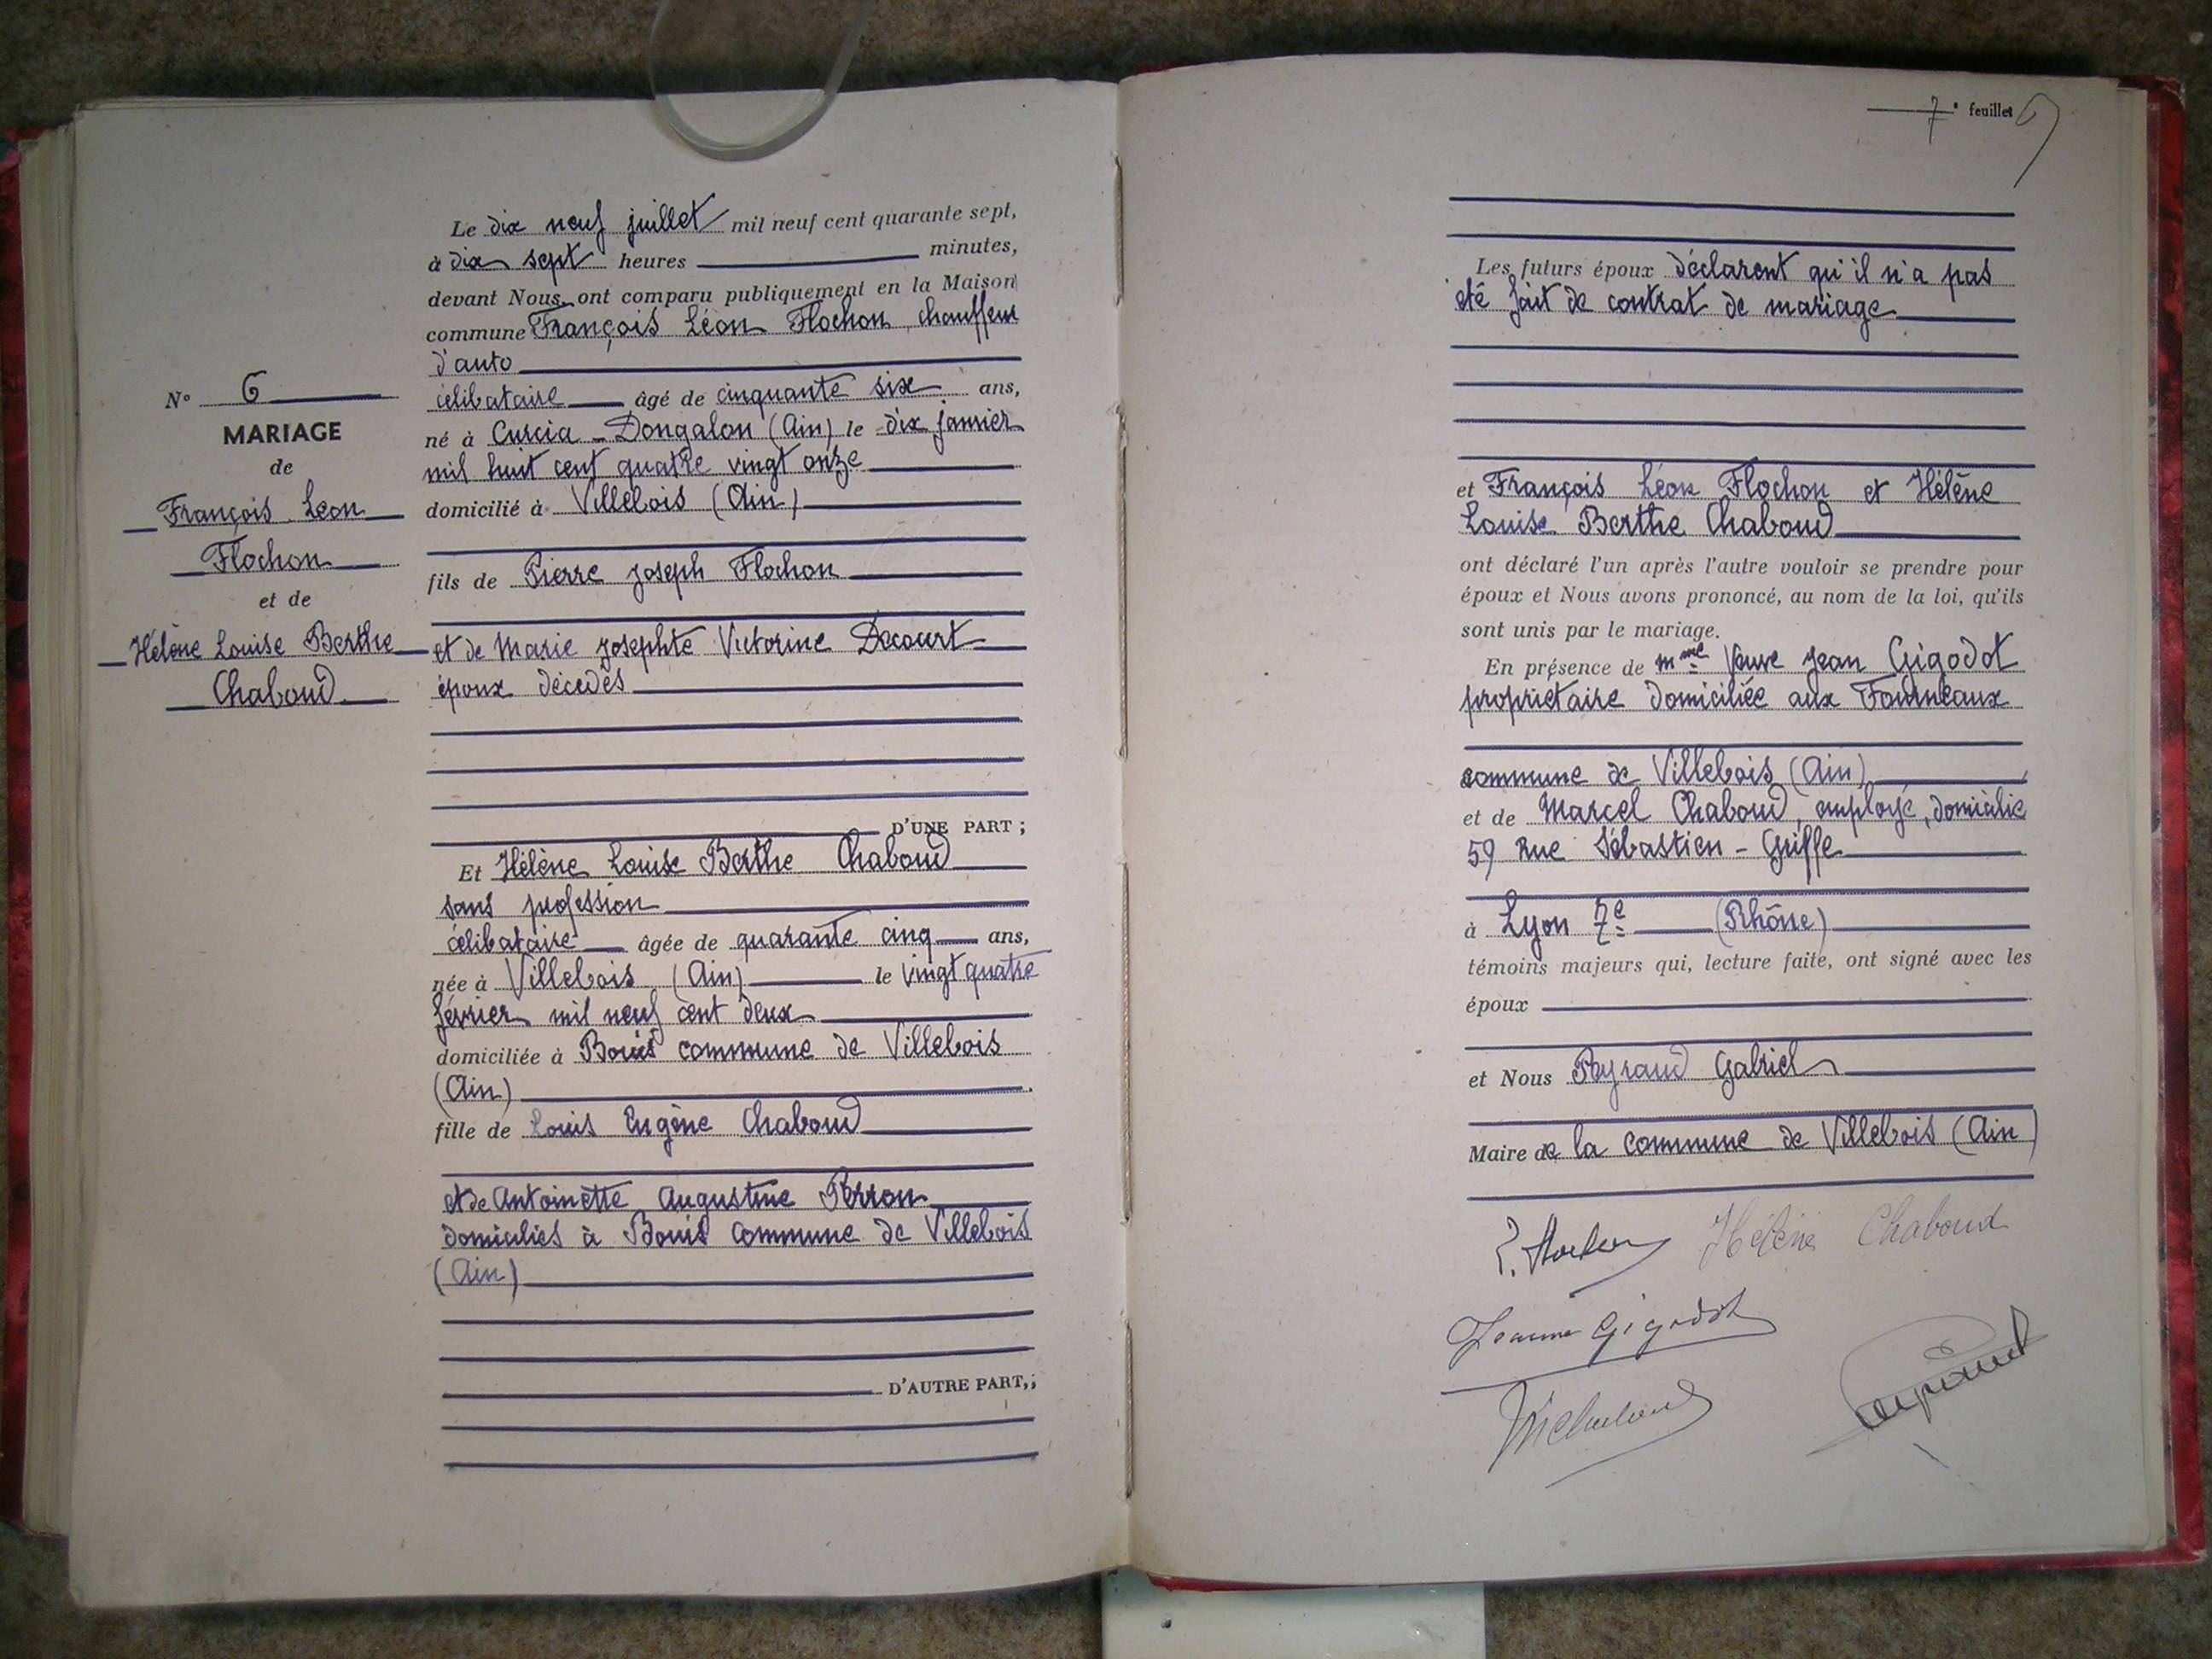 N° 6
MARIAGE
de
François Léon
Flochon
et de
Hélène Louise Berthe
Chaboud
Le dix neuf juillet mil neuf cent quarante sept,
à dix sept heures minutes,
devant Nous ont comparu publiquement en la Maison
commune François Léon Flochon, chauffeur
d'auto
célibataire âgé de cinquante six ans,
né à Curcia-Dongalon (Ain) le dix janvier
mil huit cent quatre vingt onze
domicilié à Villebois (Ain)
fils de Pierre Joseph Flochon
et de Marie Josephte Victorine Decourt
époux décédés
D'UNE PART ;
Et Hélène Louise Berthe Chaboud
sans profession
célibataire âgée de quarante cinq ans,
née à Villebois (Ain) le vingt quatre
février mil neuf cent deux
domiciliée à Bouis commune de Villebois
(Ain)
fille de Louis Eugène Chaboud
et de Antoinette Augustine Perron
domiciliés à Bouis commune de Villebois
(Ain)
D'AUTRE PART,;
7e feuillet
Les futurs époux déclarent qu'il n'a pas
été fait de contrat de mariage
et François Léon Flochon et Hélène
Louise Berthe Chaboud
ont déclaré l'un après l'autre vouloir se prendre pour
époux et Nous avons prononcé, au nom de la loi, qu'ils
sont unis par le mariage.
En présence de Mme Veuve Jean Gigodot
propriétaire domiciliée aux Fourneaux
commune de Villebois (Ain)
et de Marcel Chaboud, employé, domicilié
59 Rue Sébastien-Griffe
à Lyon 7e (Rhône)
témoins majeurs qui, lecture faite, ont signé avec les
époux
et Nous Peyraud Gabriel
Maire de la commune de Villebois (Ain)
Hélène Chaboud
Jeanne Gigodot
Peyraud